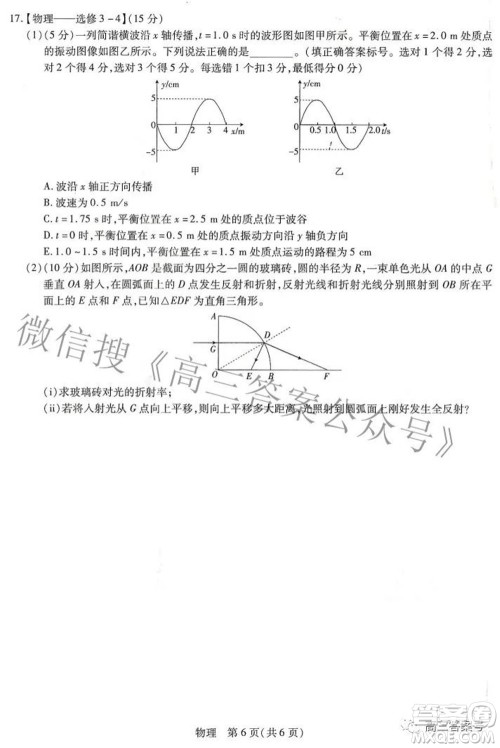 17.【物理——选修3-4】(15分)
(1)(5分)一列简谐横波沿x轴传播,t=1.0s时的波形图如图甲所示。平衡位置在x=2.0m处质点
的振动图像如图乙所示。下列说法正确的是________。(填正确答案标号。选对1个得2分,选
对2个得4分,选对3个得5分。每选错1个扣3分,最低得分0分)
y/cm
5
0
-5
1 2 3 4 x/m
甲
y/cm
5
0
-5
0.5 1.0 1.5 2.0 t/s
t
乙
A.波沿x轴正方向传播
B.波速为0.5m/s
C.t=1.75s时,平衡位置在x=2.5m处的质点位于波谷
D.t=0时,平衡位置在x=2.5m处的质点运动方向沿y轴负方向
E.1.0~1.5s时间内,平衡位置在x=2.5m处质点运动的路程为5cm
(2)(10分)如图所示,AOB是截面为四分之一圆的玻璃砖,圆的半径为R,一束单色光从OA的中点G
垂直OA射入,在圆弧面上的D点发生反射和折射,反射光线和折射光线分别照射到OB所在平
面上的E点和F点,已知△EDF为直角三角形。
A
D
G
O
E
B
F
(i)求玻璃砖对光的折射率;
(ii)若将入射光从G点向上平移,则向上平移多大距离,光照射到圆弧面上刚好发生全反射?
微信搜《高三答案公众号》
物理 第6页(共6页)
高三答案号